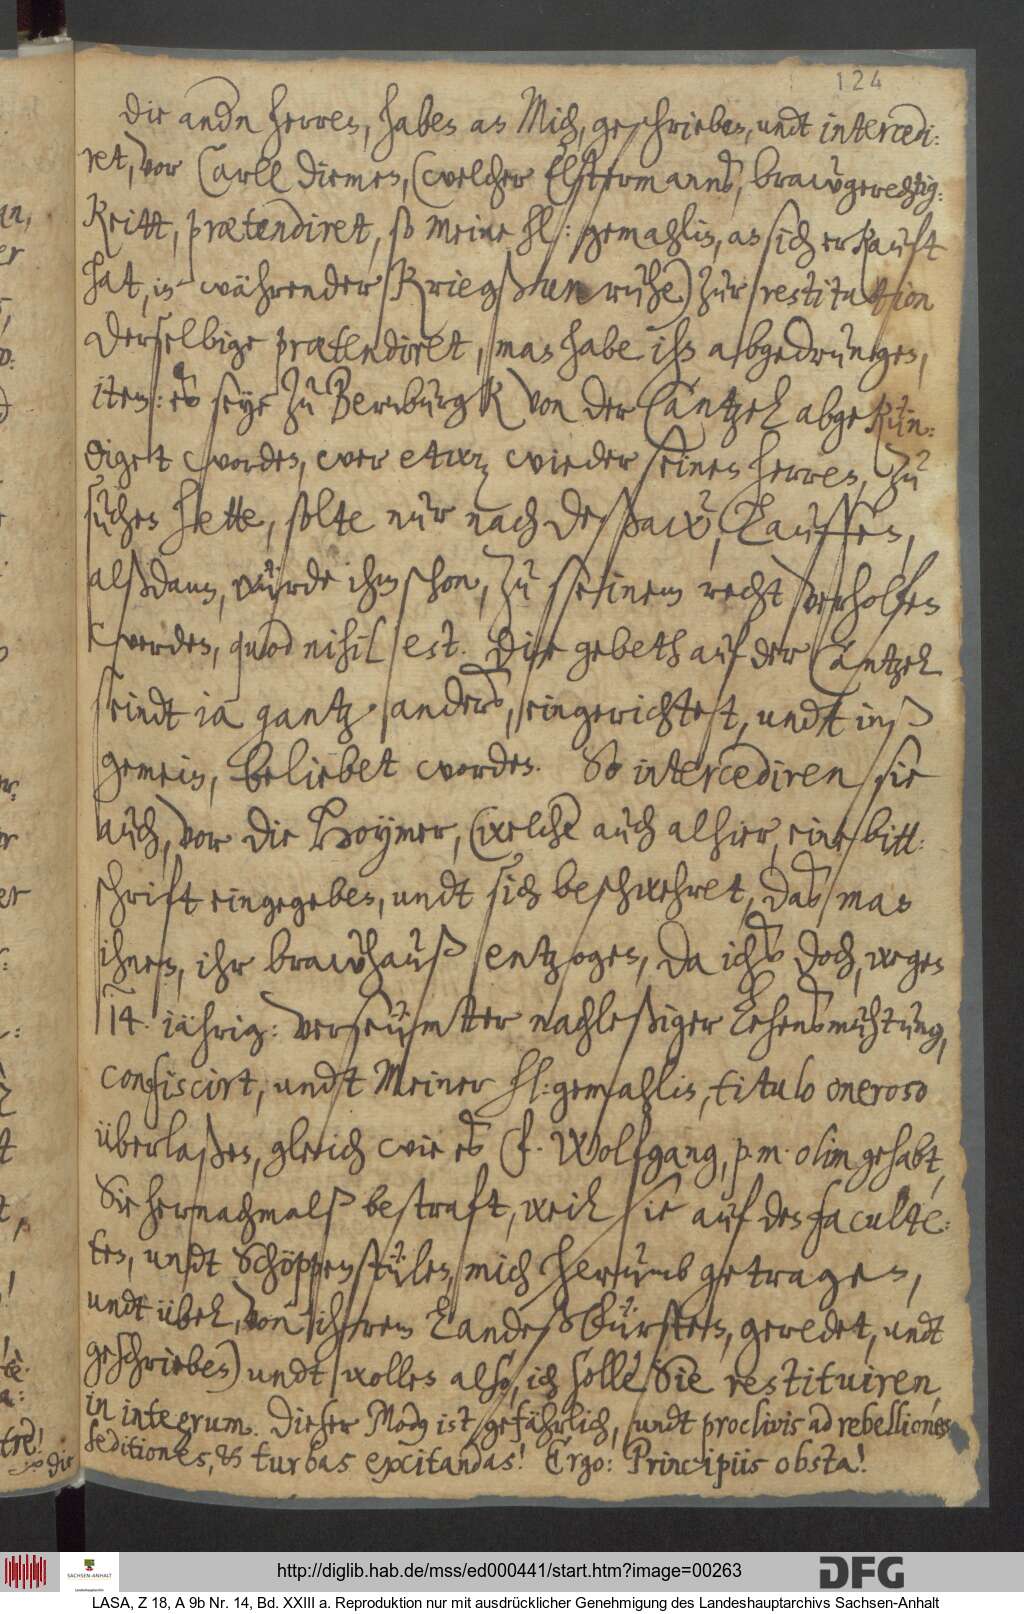 124
Die andn herren, haben an Mich, geschrieben, undt intercedi:
ret, vor Carll Diemen, (welcher Elstermanns, brawgerechtig:
keitt, prætendiret, so meine hl: gemahlin, an sich erkauft
hat, in währender Kriegßunruhe) zur restitution
derselbige prætendiret, man habe ihn abgedrungen,
item: es seye zu Bernburgk von der Cantzel abgekün:
diget worden, wer etwaz wieder seinen herren, zu
suchen hette, solte nur nach Deßaw, lauffen,
alßdann, würde ihm schon, zu seinem recht verholfen
werden, quod nihil est. Die gebeth auf der Cantzel
seindt ia gantz anders, eingerichtet, undt inß
gemein, beliebet worden. So intercediren sie
auch, vor die Hoymer, (welche auch alhier, eine bitt:
schrift eingegeben, undt sich beschwehret, das man
ihnen, ihr brawhauß entzogen, da ichs doch, wegen
14. iährig: verseumtter nachleßiger Lehensmuhtung,
confiscirt, undt Meiner hl: gemahlin, titulo oneroso
überlaßen, gleich wie es F. Wolfgang, p. m. olim gehabt,
Sie hernachmalß bestraft, weil sie auf den faculte:
ten, undt Schöppenstülen, mich herumb getragen,
undt übel, von ihrem Landeßfürsten, geredet, undt
geschrieben) undt wollen also, ich solle Sie restituiren
in integrum. Dieser Modus ist gefährlich, undt proclivis ad rebelliones,
seditiones, & turbas excitandas! Ergo: Principiis obsta!
die
http://diglib.hab.de/mss/ed000441/start.htm?image=00263
DFG
SACHSEN-ANHALT
LASA, Z 18, A 9b Nr. 14, Bd. XXIII a. Reproduktion nur mit ausdrücklicher Genehmigung des Landeshauptarchivs Sachsen-Anhalt